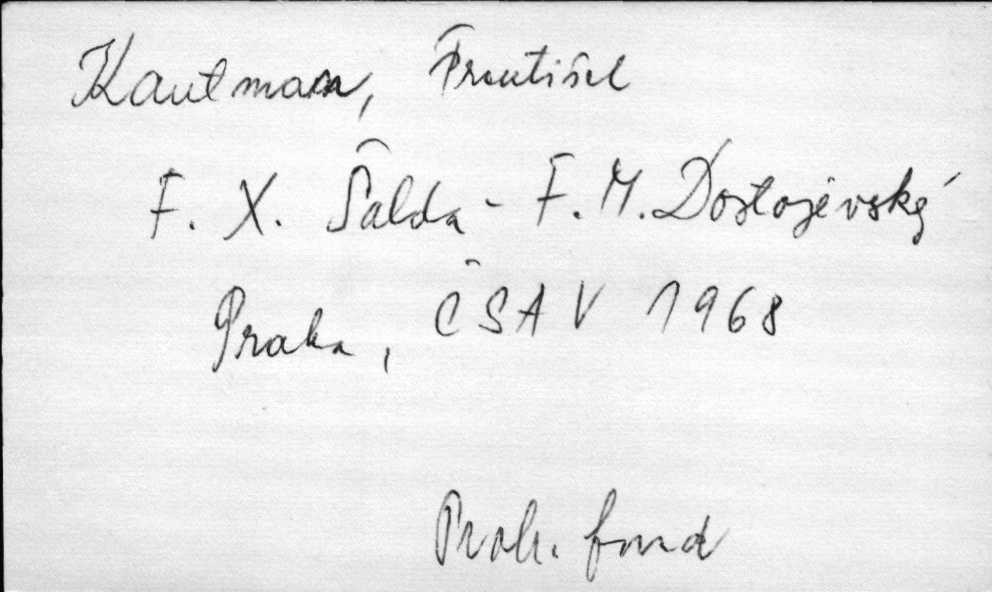 Kautman, František
F. X. Šalda - F. M. Dostojevský
Praha, ČSAV 1968
Proh. fond